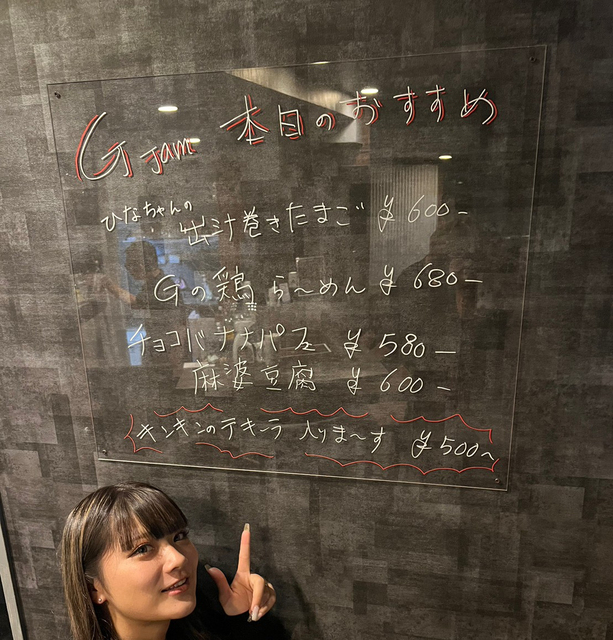 G Jam 本日のおすすめ
ひなちゃんの出汁巻きたまご ¥600-
Gの鶏らーめん ¥680-
チョコバナナパフェ ¥580-
麻婆豆腐 ¥600-
キンキンのテキーラ入りま〜す ¥500~